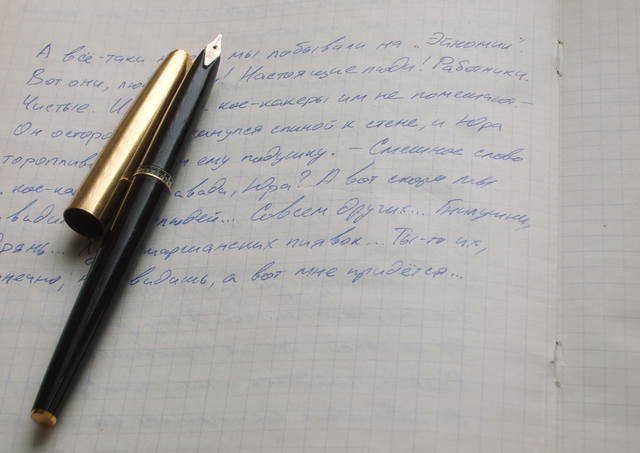 А всё-таки мы побывали на „Эйномии".
Вот они, лю ! Настоящие люди! Работники.
Чистые. И кое-какеры им не помешают—
Он остор кинулся спиной к стене, и Юра
тороплив ему подушку. – Смешное слово
кое-ка авда, Юра? А вот скоро мы
види людей... Совсем других... Гнилушки,
дрянь... марсианских пиявок... Ты-то их,
нечно, видишь, а вот мне придётся...